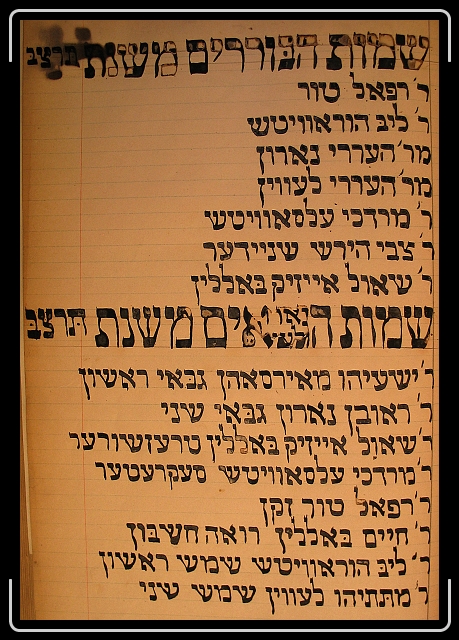 שמות הבוררים משנת תרצב
ר׳ רפאל טור
ר׳ ליב הוראוויטש
מר׳ העררי נארוז
מר׳ העררי לעווין
ר׳ מרדכי עלסאוויטש
ר׳ צבי הירש שניידער
ר׳ שאול אייזיק באללין
שמות משנת תרצב
ר׳ ישעיהו מאירסאהן גבאי ראשון
ר׳ ראובן נארוז גבאי שני
ר׳ שאול אייזיק באללין טרעזשורער
ר׳ מרדכי עלסאוויטש סעקרעטער
ר׳ רפאל טור זקן
ר׳ חיים באללין רואה חשבון
ר׳ ליב הוראוויטש שימש ראשון
ר׳ מתתיהו לעווין שימש שני